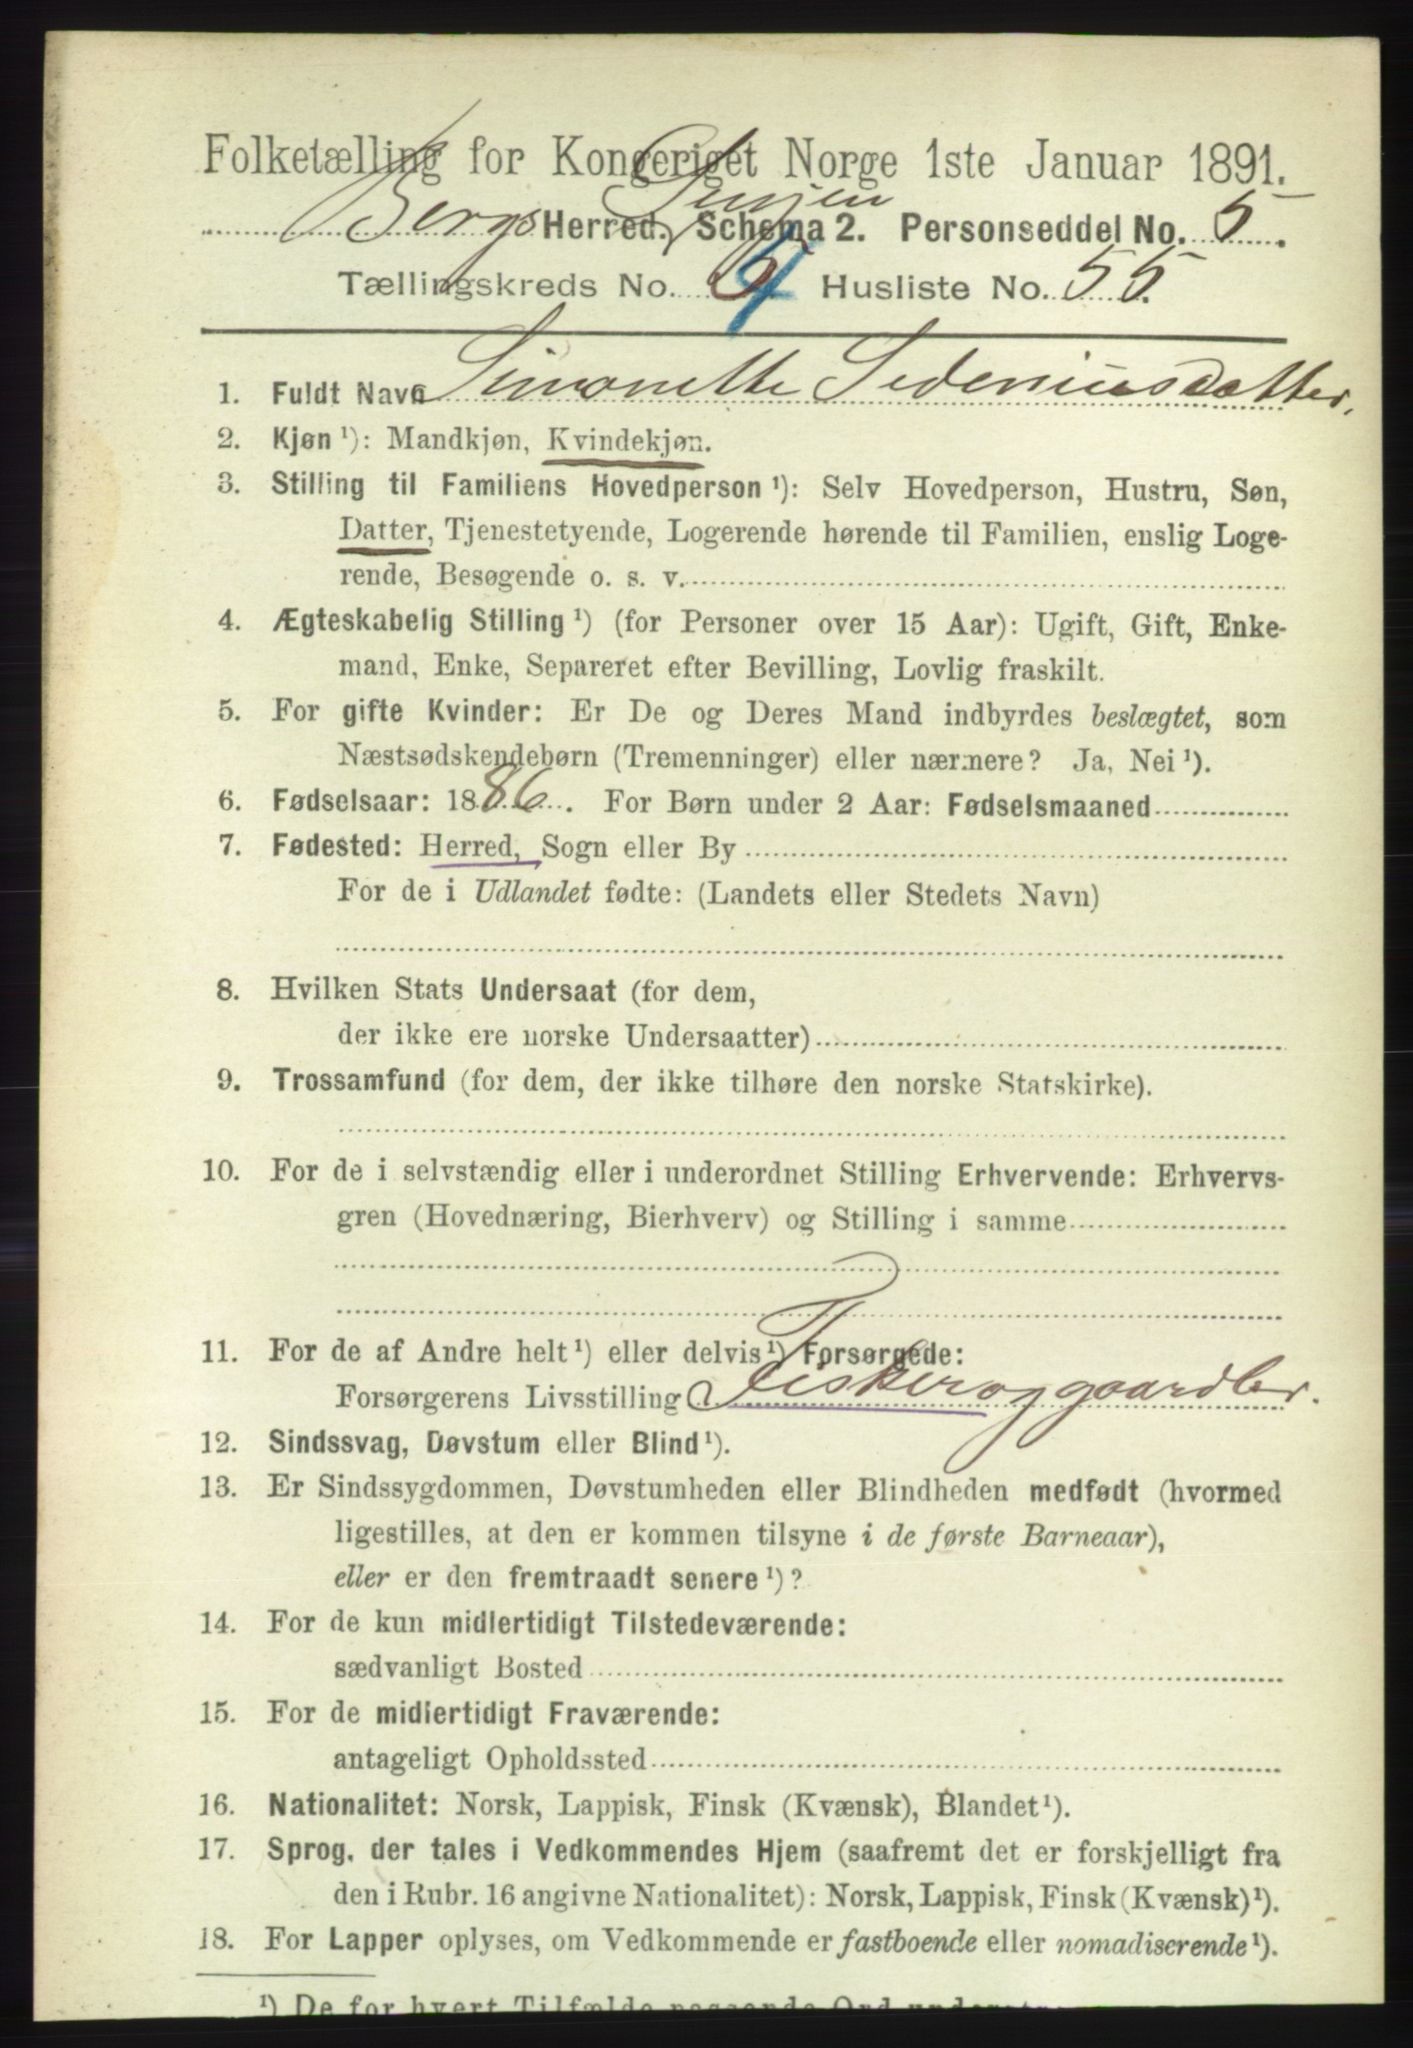 Folketælling for Kongeriget Norge 1ste Januar 1891.
Senjen
Bergs Herred. Schema 2. Personseddel No. 5.
Tællingskreds No. 4 Husliste No. 55.
1. Fuldt Navn Simonette Sedeniusdatter.
2. Kjøn ¹): Mandkjøn, Kvindekjøn.
3. Stilling til Familiens Hovedperson ¹): Selv Hovedperson, Hustru, Søn,
Datter, Tjenestetyende, Logerende hørende til Familien, enslig Loge-
rende, Besøgende o. s. v.
4. Ægteskabelig Stilling ¹) (for Personer over 15 Aar): Ugift, Gift, Enke-
mand, Enke, Separeret efter Bevilling, Lovlig fraskilt.
5. For gifte Kvinder: Er De og Deres Mand indbyrdes beslægtet, som
Næstsødskendebørn (Tremenninger) eller nærmere? Ja, Nei ¹).
6. Fødselsaar: 1886. For Børn under 2 Aar: Fødselsmaaned
7. Fødested: Herred, Sogn eller By
For de i Udlandet fødte: (Landets eller Stedets Navn)
8. Hvilken Stats Undersaat (for dem,
der ikke ere norske Undersaatter)
9. Trossamfund (for dem, der ikke tilhøre den norske Statskirke).
10. For de i selvstændig eller i underordnet Stilling Erhvervende: Erhvervs-
gren (Hovednæring, Bierhverv) og Stilling i samme
11. For de af Andre helt ¹) eller delvis ¹) Forsørgede:
Forsørgerens Livsstilling Fisker og gaardbr.
12. Sindssvag, Døvstum eller Blind ¹).
13. Er Sindssygdommen, Døvstumheden eller Blindheden medfødt (hvormed
ligestilles, at den er kommen tilsyne i de første Barneaar),
eller er den fremtraadt senere ¹)?
14. For de kun midlertidigt Tilstedeværende:
sædvanligt Bosted
15. For de midlertidigt Fraværende:
antageligt Opholdssted
16. Nationalitet: Norsk, Lappisk, Finsk (Kvænsk), Blandet ¹).
17. Sprog, der tales i Vedkommendes Hjem (saafremt det er forskjelligt fra
den i Rubr. 16 angivne Nationalitet): Norsk, Lappisk, Finsk (Kvænsk) ¹).
18. For Lapper oplyses, om Vedkommende er fastboende eller nomadiserende ¹).
¹) De for hvert Tilfælde passende Ord